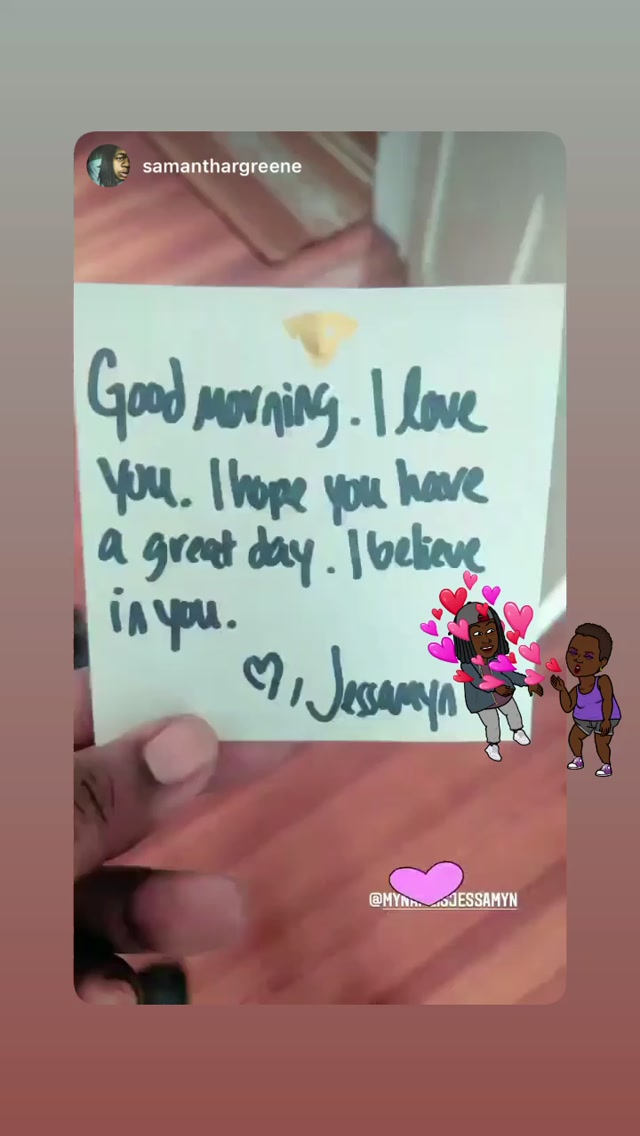 samanthargreene
Good morning. I love
you. I hope you have
a great day. I believe
in you.
♡, Jessamyn